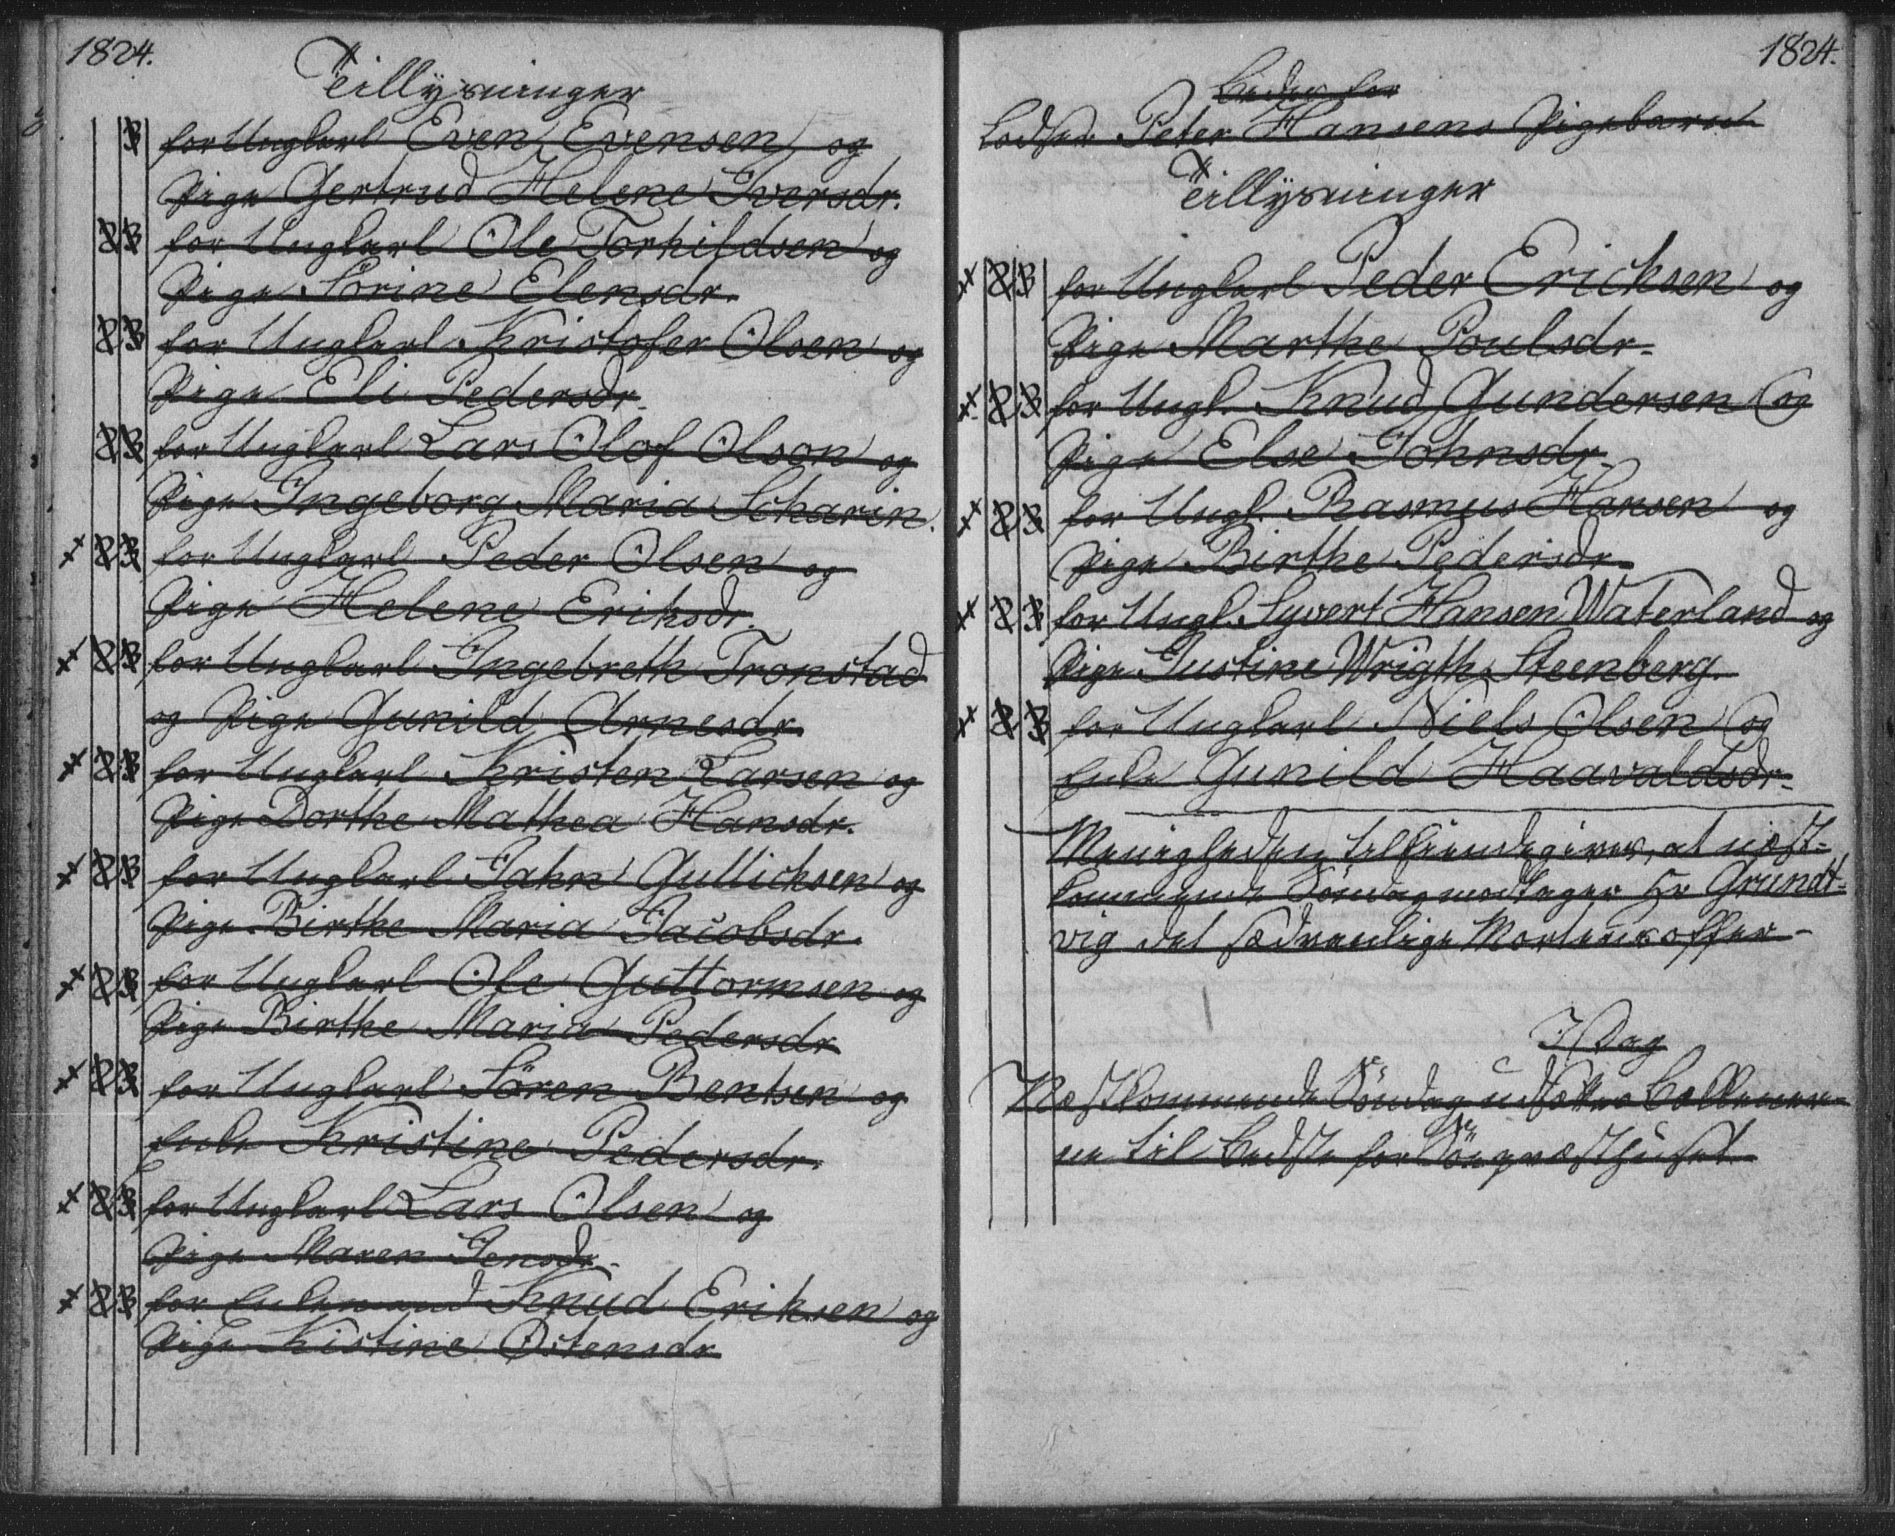 1824.
Tillysninger
B for Ungkarl Even Evensen og
Pige Gertrud Helene Iversdr.
B for Ungkarl Ole Torkildsen og
Pige Sörine Elensdr.
B for Ungkarl Kristofer Olsen og
Pige Eli Pedersdr.
B for Ungkarl Lars Olof Olson og
Pige Ingeborg Maria Scharin.
B for Ungkarl Peder Olsen og
Pige Helene Eriksdr.
B for Ungkarl Ingebreth Tronstad
og Pige Gunild Arnesdr.
B for Ungkarl Kristen Larsen og
Pige Dorthe Mathea Hansdr.
B for Ungkarl Jahn Gullichsen og
Pige Birthe Maria Jacobsdr.
B for Ungkarl Ole Guttormsen og
Pige Birthe Maria Pedersdr
B for Ungkarl Sören Bentsen og
Enke Kristine Pedersdr.
B for Ungkarl Lars Olsen og
Pige Maren Jensdr.
B for Enkemand Knud Eriksen og
Pige Kistine Ostensdr
1824.
Bedes for
Lodser Peter Hansens Pigebarn
Tillysninger
B for Ungkarl Peder Ericksen og
Pige Marthe Poulsdr.
B for Ungk. Knud Gundersen og
Pige Else Johnsdr.
B for Ungk. Rasmus Hansen og
Pige Birthe Pedersdr.
B for Ungk. Syvert Hansen Waterland og
Pige Justine Wrigth Steenberg.
B for Ungkarl Niels Olsen og
Enke Gunild Haavaldsdr.
Menigheden tilkiendegives, at næst-
kommende Söndag modtager Hr Grundt-
vig det sædvanlige Mortensoffer
I Dag
Næstkommende Söndag udsættes Bækkener-
ne til bedste for